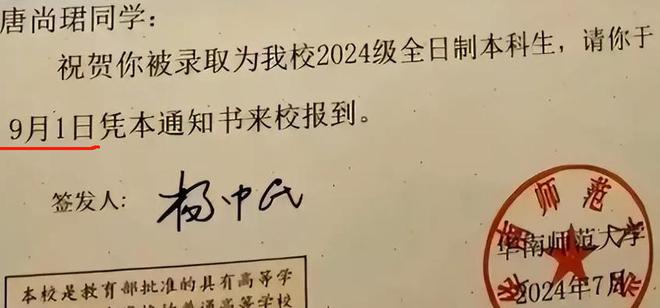 唐尚珺同学:
祝贺你被录取为我校2024级全日制本科生,请你于
9月1日凭本通知书来校报到。
签发人:
杨中民
华南师范大学
华南师范大
2024年7月
本校是教育部批准的具有高等学
普通高等学校